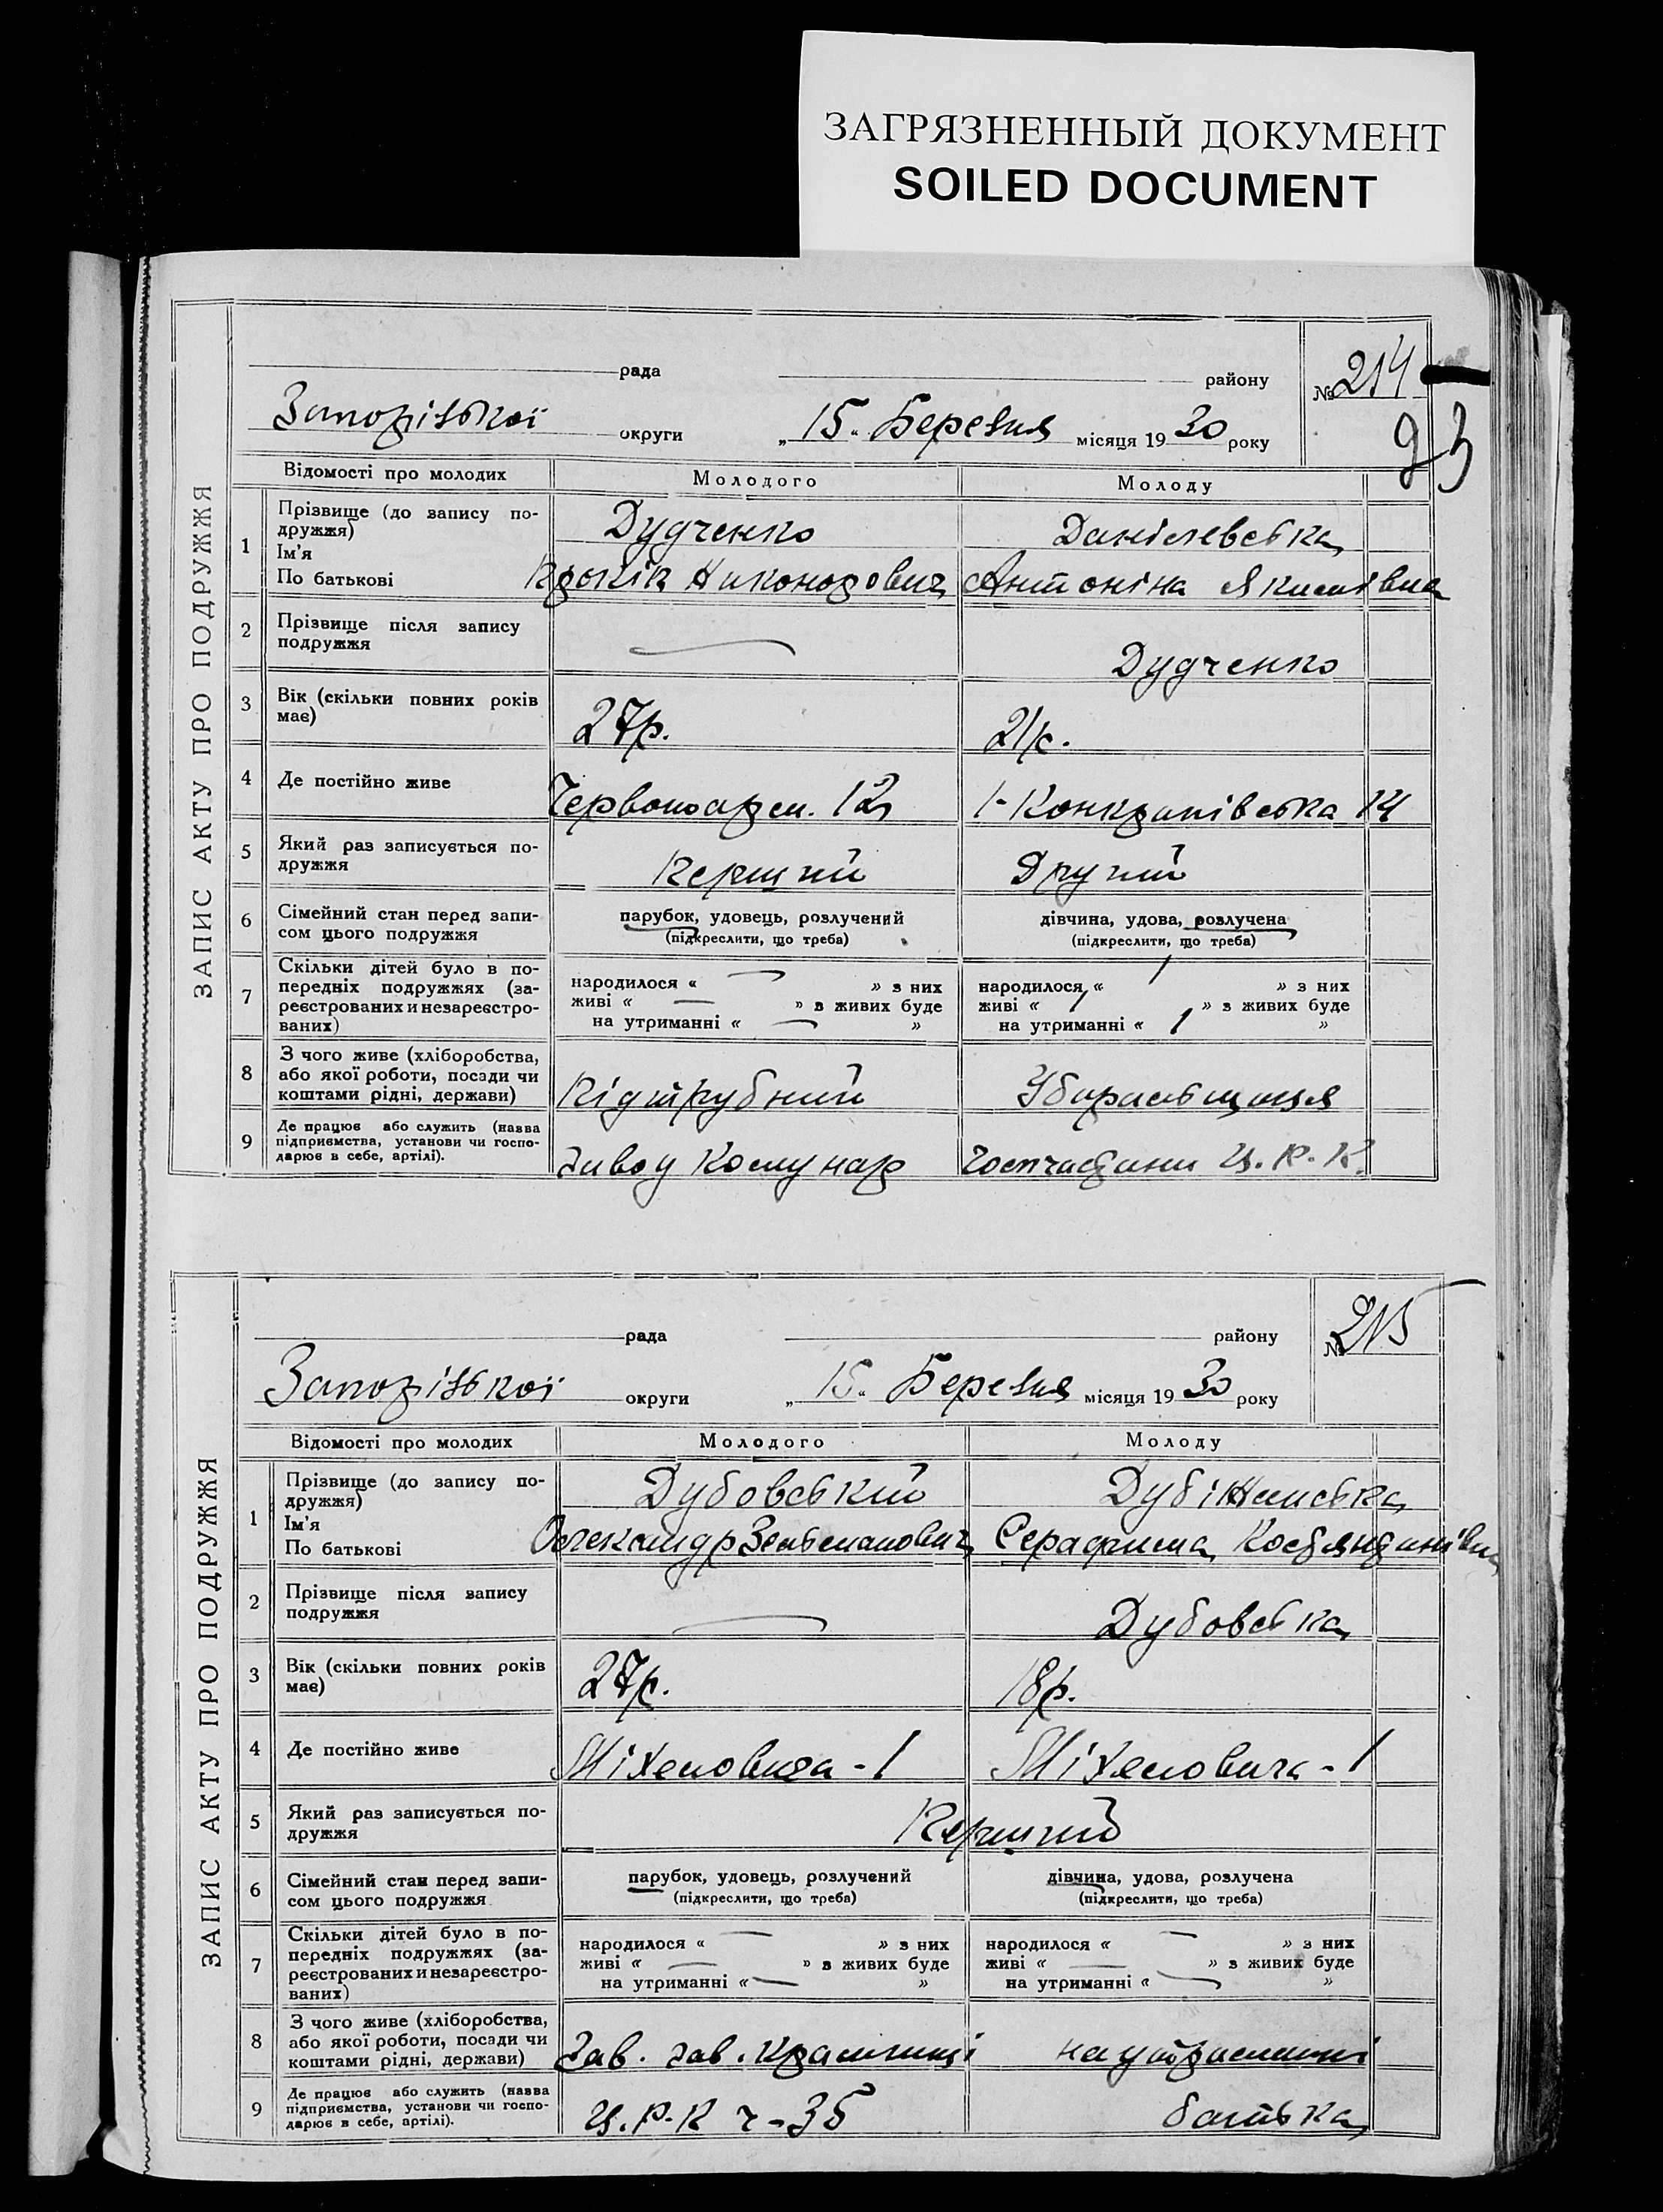 ЗАГРЯЗНЕННЫЙ ДОКУМЕНТ
SOILED DOCUMENT
ЗАПИС АКТУ ПРО ПОДРУЖЖЯ
рада району № 214
Запорізької округи „15“ Березня місяця 1930 року
93
Відомості про молодих Молодого Молоду
1 Прізвище (до запису по-
дружжя) Дудченко Данілевська
Ім'я
По батькові Никонорович Антоніна Якимівна
2 Прізвище після запису
подружжя — Дудченко
3 Вік (скільки повних років
має) 27р. 21р.
4 Де постійно живе Червоноарм. 12 14
5 Який раз записується по-
дружжя Перший Другий
6 Сімейний стан перед запи-
сом цього подружжя
парубок, удовець, розлучений дівчина, удова, розлучена
(підкреслити, що треба) (підкреслити, що треба)
7 Скільки дітей було в по-
передніх подружжях (за-
реєстрованих и незареєстро-
ваних)
народилося « — » з них народилося « 1 » з них
живі « — » з живих буде живі « 1 » з живих буде
на утриманні « — » на утриманні « 1 »
8 З чого живе (хліборобства,
або якої роботи, посади чи
коштами рідні, держави) Убиральщиця
9 Де працює або служить (назва
підприємства, установи чи госпо-
дарює в себе, артілі). Завод Комунар Ц.Р.К.
ЗАПИС АКТУ ПРО ПОДРУЖЖЯ
рада району № 215
Запорізької округи „15“ Березня місяця 1930 року
Відомості про молодих Молодого Молоду
1 Прізвище (до запису по-
дружжя) Дубовський
Ім'я
По батькові Олександр Серафима Костянтинівна
2 Прізвище після запису
подружжя — Дубовська
3 Вік (скільки повних років
має) 27р. 18р.
4 Де постійно живе Міхеловича - 1 Міхеловича - 1
5 Який раз записується по-
дружжя Перший
6 Сімейний стан перед запи-
сом цього подружжя
парубок, удовець, розлучений дівчина, удова, розлучена
(підкреслити, що треба) (підкреслити, що треба)
7 Скільки дітей було в по-
передніх подружжях (за-
реєстрованих и незареєстро-
ваних)
народилося « — » з них народилося « — » з них
живі « — » з живих буде живі « — » з живих буде
на утриманні « — » на утриманні « — »
8 З чого живе (хліборобства,
або якої роботи, посади чи
коштами рідні, держави) Зав. зав. крамниці на утриманні
9 Де працює або служить (назва
підприємства, установи чи госпо-
дарює в себе, артілі). Ц.Р.К ч-35 батька